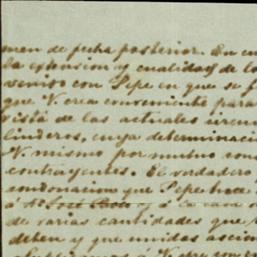 men de fecha posterior. En cu
la extension y cualidad de lo
venido con Pepe en que se f
que V. crea conveniente para
vista de las actuales circun
linderos, cuya determinaci
V. mismo por mutuo con
contrayentes. El verdadero
condonacion que Pepe hace
á José y á la casa
de varias cantidades que
deben y que unidas ascien
á V. creo con